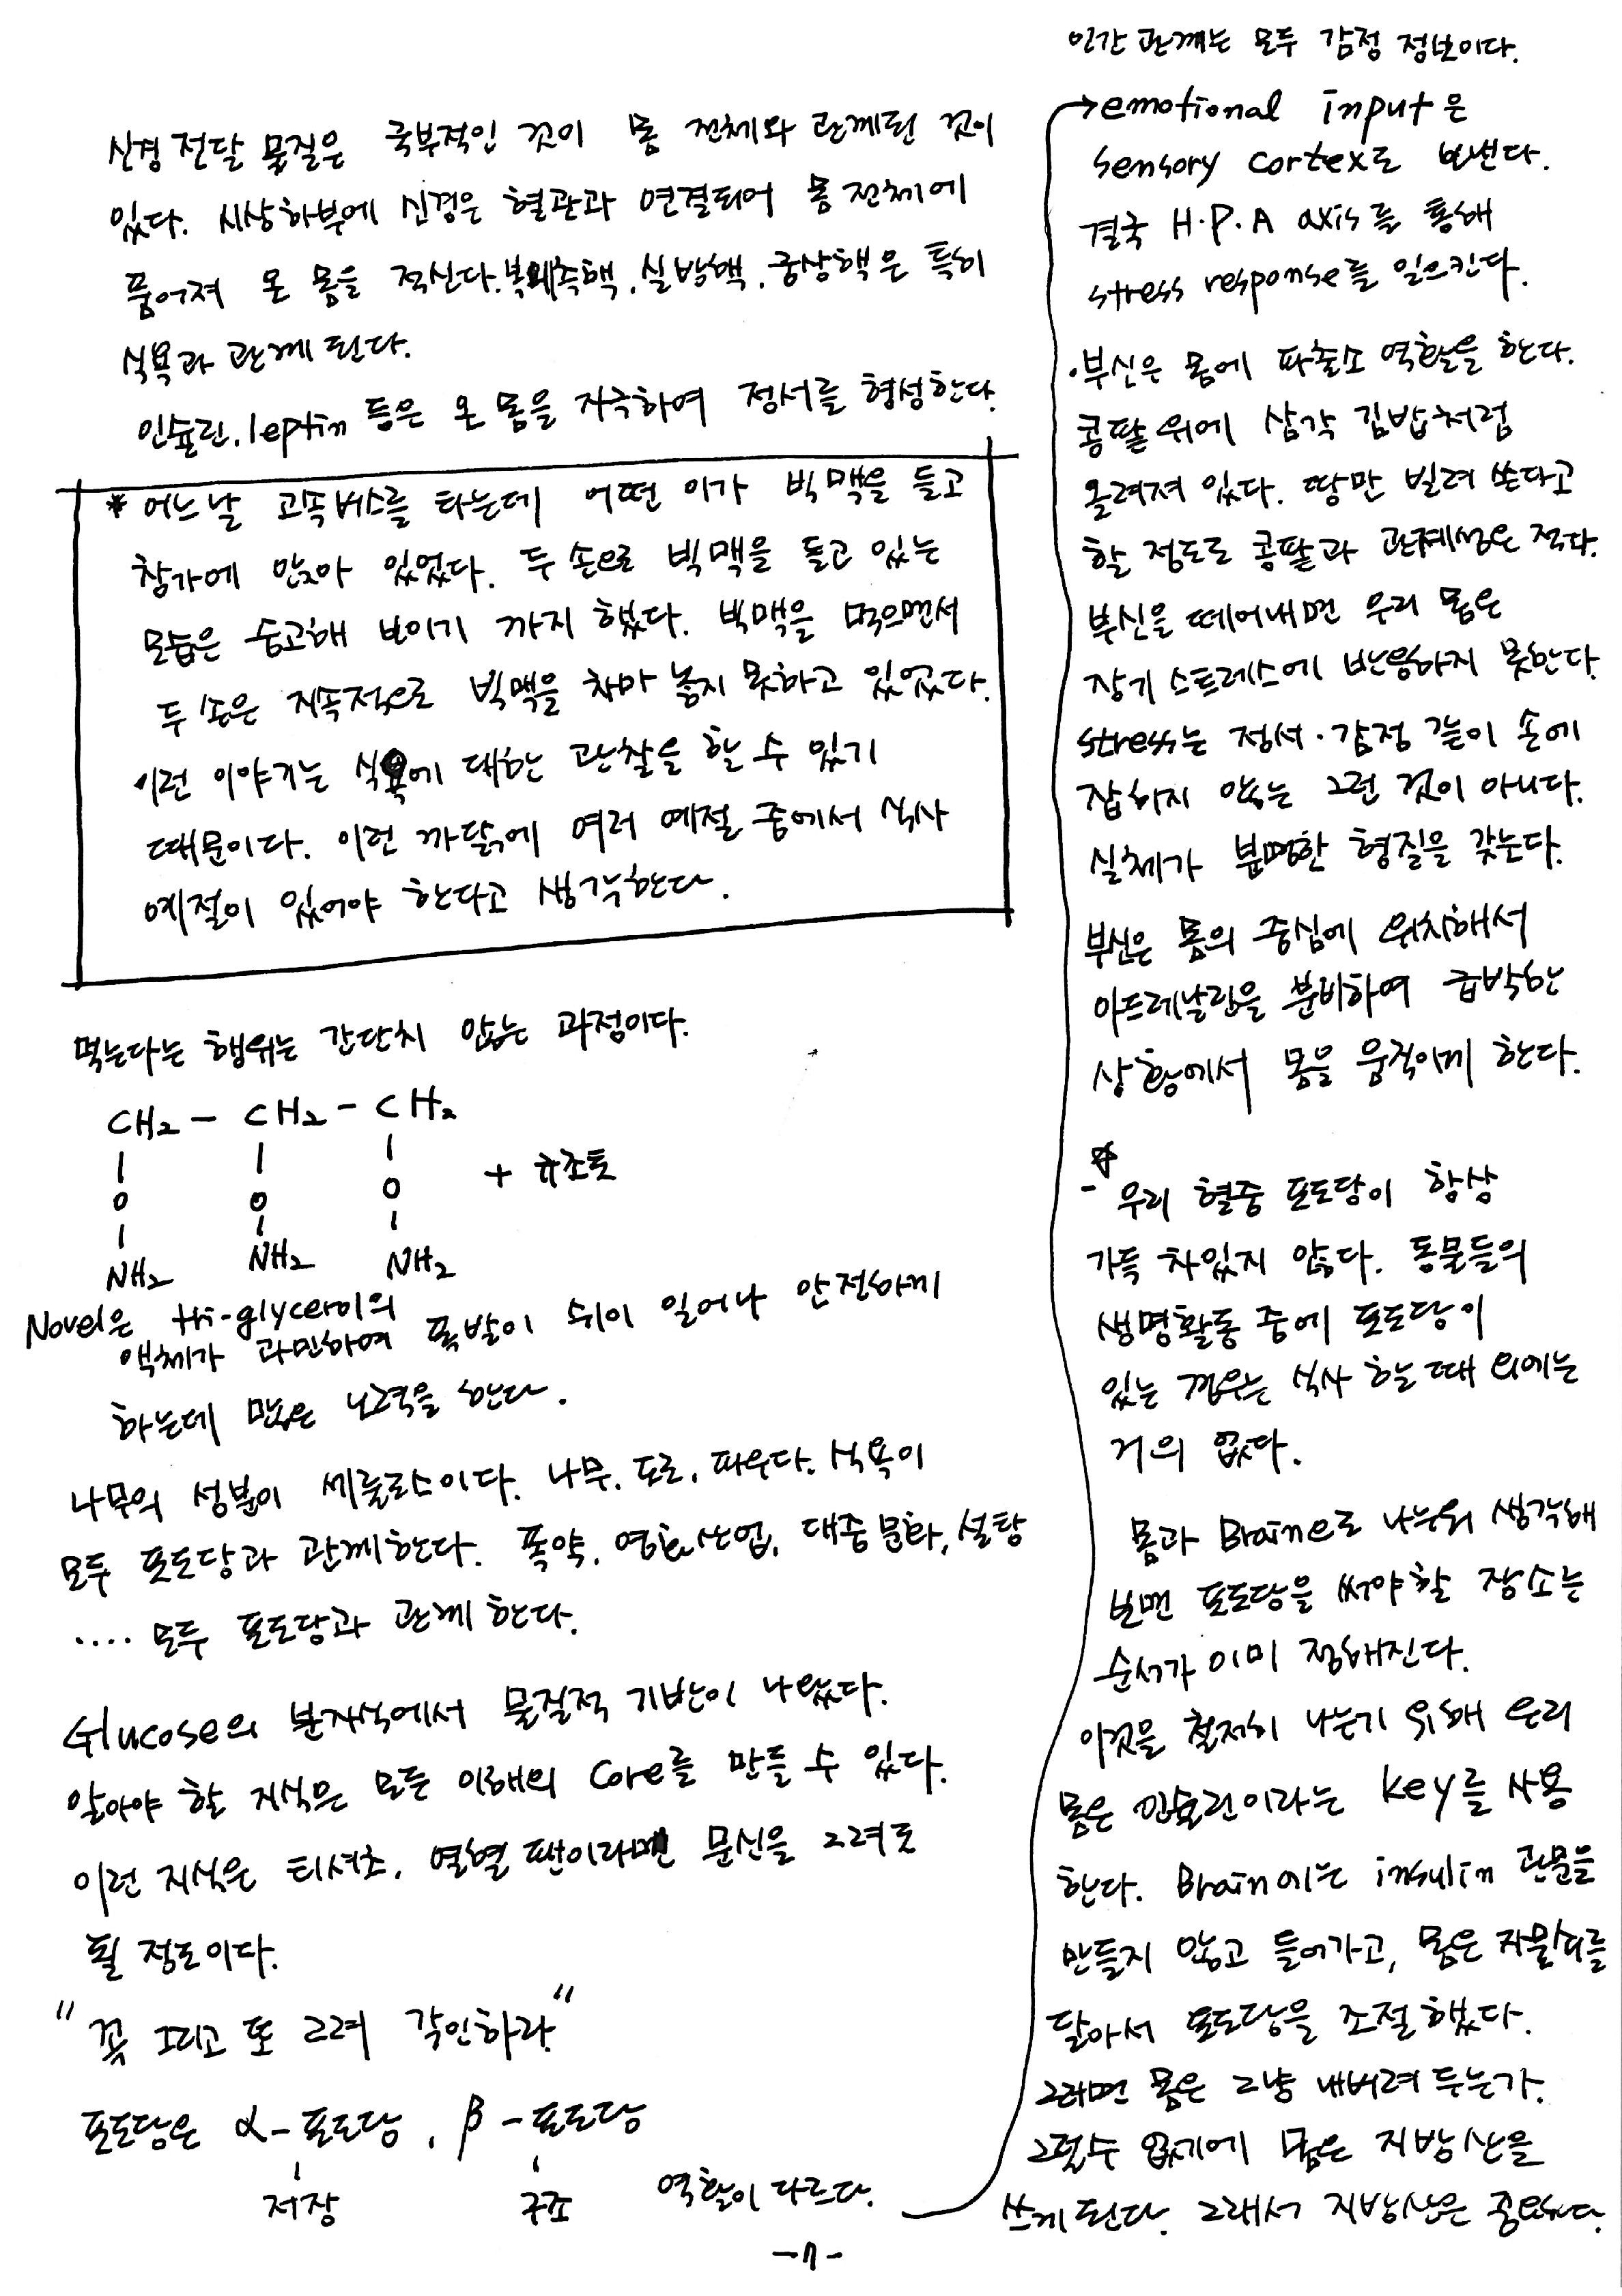 신경 전달 물질은 국부적인 것이 몸 전체와 관계된 것이
있다. 시상하부에 신경은 혈관과 연결되어 몸 전체에
품어져 온 몸을 적신다. 복내측핵, 실방핵, 궁상핵은 특히
식욕과 관계 된다.
인슐린, leptin 등은 온 몸을 자극하여 정서를 형성한다.
* 어느날 고속버스를 타는데 어떤 이가 빅맥을 들고
창가에 앉아 있었다. 두 손으로 빅맥을 들고 있는
모습은 숭고해 보이기 까지 했다. 빅맥을 먹으면서
두 손은 지속적으로 빅맥을 차마 놓지 못하고 있었다.
이런 이야기는 식욕에 대한 관찰을 할 수 있기
때문이다. 이런 까닭에 여러 예절 중에서 식사
예절이 있어야 한다고 생각한다.
먹는다는 행위는 간단치 않는 과정이다.
CH₂ - CH₂ - CH₂
| | |
O O O + 규조토
| | |
NH₂ NH₂ NH₂
Novel은 tri-glycerol의
액체가 과민하여 폭발이 쉬이 일어나 안전하게
하는데 많은 노력을 한다.
나무의 성분이 세룰로스이다. 나무, 도로, 파우다, 식욕이
모두 포도당과 관계한다. 폭약, 영화산업, 대중문화, 설탕
.... 모두 포도당과 관계 한다.
Glucose의 분자식에서 물질적 기반이 나왔다.
알아야 할 지식은 모든 이해의 Core를 만들 수 있다.
이런 지식은 티셔츠, 열혈 팬이라면 문신을 그려도
될 정도이다.
"꼭 그리고 또 그려 각인하라."
포도당은 α-포도당, β-포도당
저장 구조 역할이 다르다.
-7-
인간 관계는 모두 감정 정보이다.
→emotional input은
sensory cortex로 보낸다.
결국 H.P.A axis를 통해
stress response를 일으킨다.
·부신은 몸에 파출소 역할을 한다.
콩팥 위에 삼각 김밥처럼
올려져 있다. 땅만 빌려 쓴다고
할 정도로 콩팥과 관계성은 적다.
부신을 떼어내면 우리 몸은
장기 스트레스에 반응하지 못한다.
stress는 정서·감정 같이 손에
잡히지 않는 그런 것이 아니다.
실체가 분명한 형질을 갖는다.
부신은 몸의 중심에 위치해서
아드레날린을 분비하여 급박한
상황에서 몸을 움직이게 한다.
-* 우리 혈중 포도당이 항상
가득 차있지 않다. 동물들의
생명활동 중에 포도당이
있는 경우는 식사 할 때 외에는
거의 없다.
몸과 Brain으로 나누워 생각해
보면 포도당을 써야할 장소는
순서가 이미 정해진다.
이것을 철저히 나눈기 위해 우리
몸은 인슐린이라는 key를 사용
한다. Brain에는 insulin 관문을
만들지 않고 들어가고, 몸은 자물쇠를
달아서 포도당을 조절했다.
그러면 몸은 그냥 내버려 두는가.
그럴수 없기에 몸은 지방산을
쓰게 된다. 그래서 지방산은 중요하다.